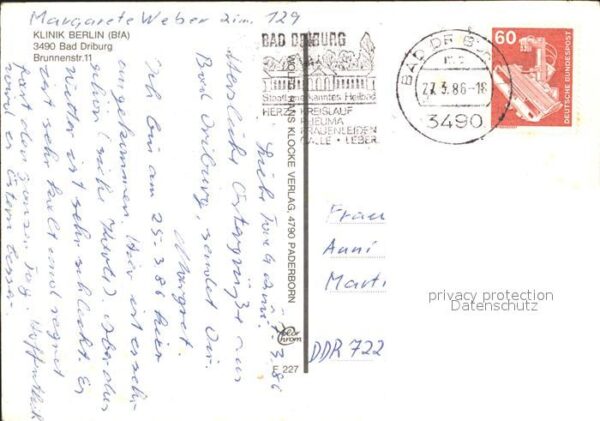 Margarete Weber Zim. 129
KLINIK BERLIN (BfA)
3490 Bad Driburg
Brunnenstr. 11
BAD DRIBURG
Staatl. anerkanntes Heilbad
HERZ • KREISLAUF
RHEUMA
FRAUENLEIDEN
GALLE • LEBER
BAD DRIBURG
27.3.86-18
3490
60
DEUTSCHE BUNDESPOST
HANS KLOCKE VERLAG, 4790 PADERBORN
color
chrom
F 227
3.86
Liebe
Herzliche Ostergrüße aus
Bad Driburg, sendet Dir
Margret.
Ich bin am 25.3.86 hier
angekommen. Hier ist es sehr
schön
ist sehr schlecht. Es
ist sehr kalt und regnet
fast den ganzen Tag. Hoffentlich
wird es Ostern besser.
Frau
Anni
Marti
DDR 722
privacy protection
Datenschutz